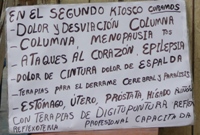 EN EL SEGUNDO KIOSCO CURAMOS
-DOLOR Y DESVIACIÓN COLUMNA
-COLUMNA, MENOPAUSIA
-ATAQUES AL CORAZÓN, EPILEPSIA
-DOLOR DE CINTURA DOLOR DE ESPALDA
-TERAPIAS PARA EL DERRAME CEREBRAL Y PARÁLISIS
-ESTÓMAGO, ÚTERO, PRÓSTATA, HÍGADO
CON TERAPIAS DE DIGITOPUNTURA
REFLEXOTERAPIA PROFESIONAL CAPACITADA